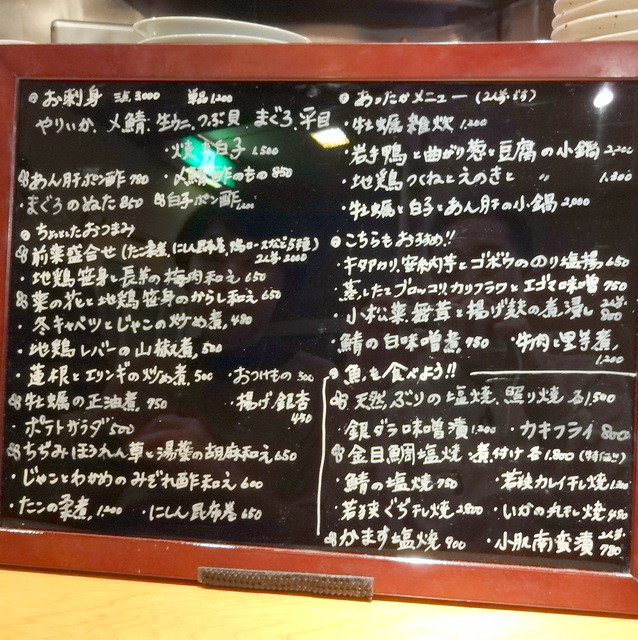 お刺身 三点 3,000 単品 1,200
やりいか、〆鯖、生ウニ、つぶ貝 まぐろ、平目
・焼 白子 1,500
あん肝ポン酢 780 ・〆鯖 酢の吉の 850
・まぐろのぬた 850 白子ポン酢
ちょっとしたおつまみ
前菜盛合せ (たこ柔煮、にしん昆布巻、鴨ロースなど5種) 2人前 2,000
・地鶏笹身と長芋の梅肉和え 650
菜の花と地鶏笹身のからし和え 650
・冬キャベツとじゃこの炒め煮 480
・地鶏レバーの山椒煮 500
・蓮根とエリンギの炒め煮 500 ・おつけもの 300
牡蠣の正油煮 750 ・揚げ銀杏 450
ポテトサラダ 500
ちぢみほうれん草と湯葉の胡麻和え 650
・じゃことわかめのみぞれ酢和え 600
・たこの柔煮 1,200 ・にしん昆布巻 650
あったかメニュー (2人前です)
・牡蠣雑炊 1,200
・岩手鴨と曲がり葱と豆腐の小鍋 2,200
・地鶏つくねとえのきと 〃 1,800
・牡蠣と白子とあん肝の小鍋 2,000
こちらもおすすめ!!
・キタアカリ、安納芋とゴボウののり塩揚 650
・蒸したてブロッコリ、カリフラワとエゴマ味噌 750
・小松菜舞茸と揚げ麸の煮浸し 800
・鯖の白味噌煮 750 ・牛肉と里芋煮 1,200
魚も食べよう!!
天然ぶりの塩焼、照り焼 各1,500
・銀ダラ味噌漬 1,200 ・カキフライ 800
金目鯛塩焼・煮付け 各1,800
・鯖の塩焼 750 ・若狭カレイ干し焼
・若狭ぐぢ干し焼 2,800 ・いかの丸干し焼 480
かます塩焼 900 ・小肌南蛮漬 780